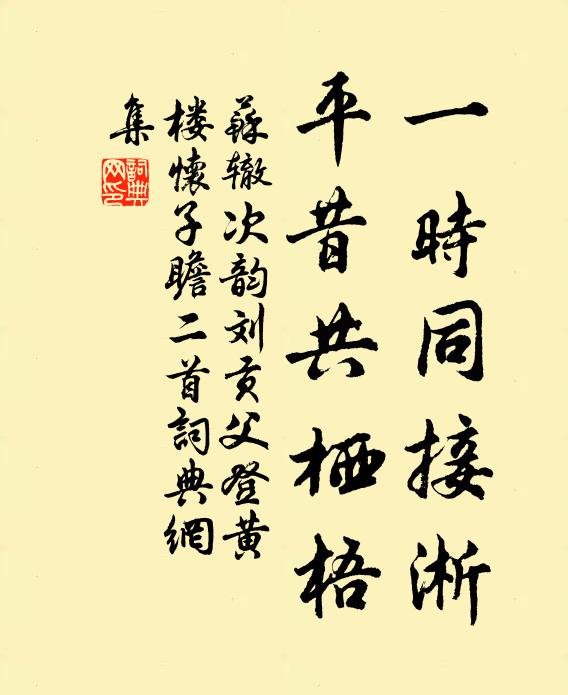 一時同接淅
平昔共栖梧
蘇辙次韵刘贡父登黄
楼懷子瞻二首詞典網
集
詞典网印